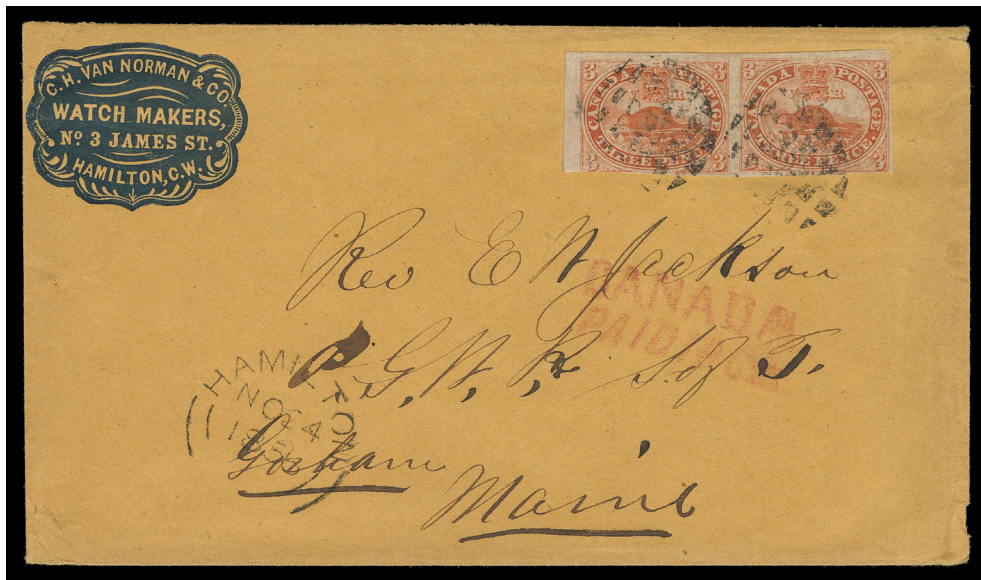 C.H. VAN NORMAN & CO.
WATCH MAKERS,
No 3 JAMES ST.
HAMILTON, C.W.
3 CANADA POSTAGE 3
3 THREE PENCE 3
CANADA POSTAGE 3
THREE PENCE 3
Rev E W Jackson
CANADA
PAID
G. W. P. S of T.
HAMILTON
NO 24
185
Gorham
Maine